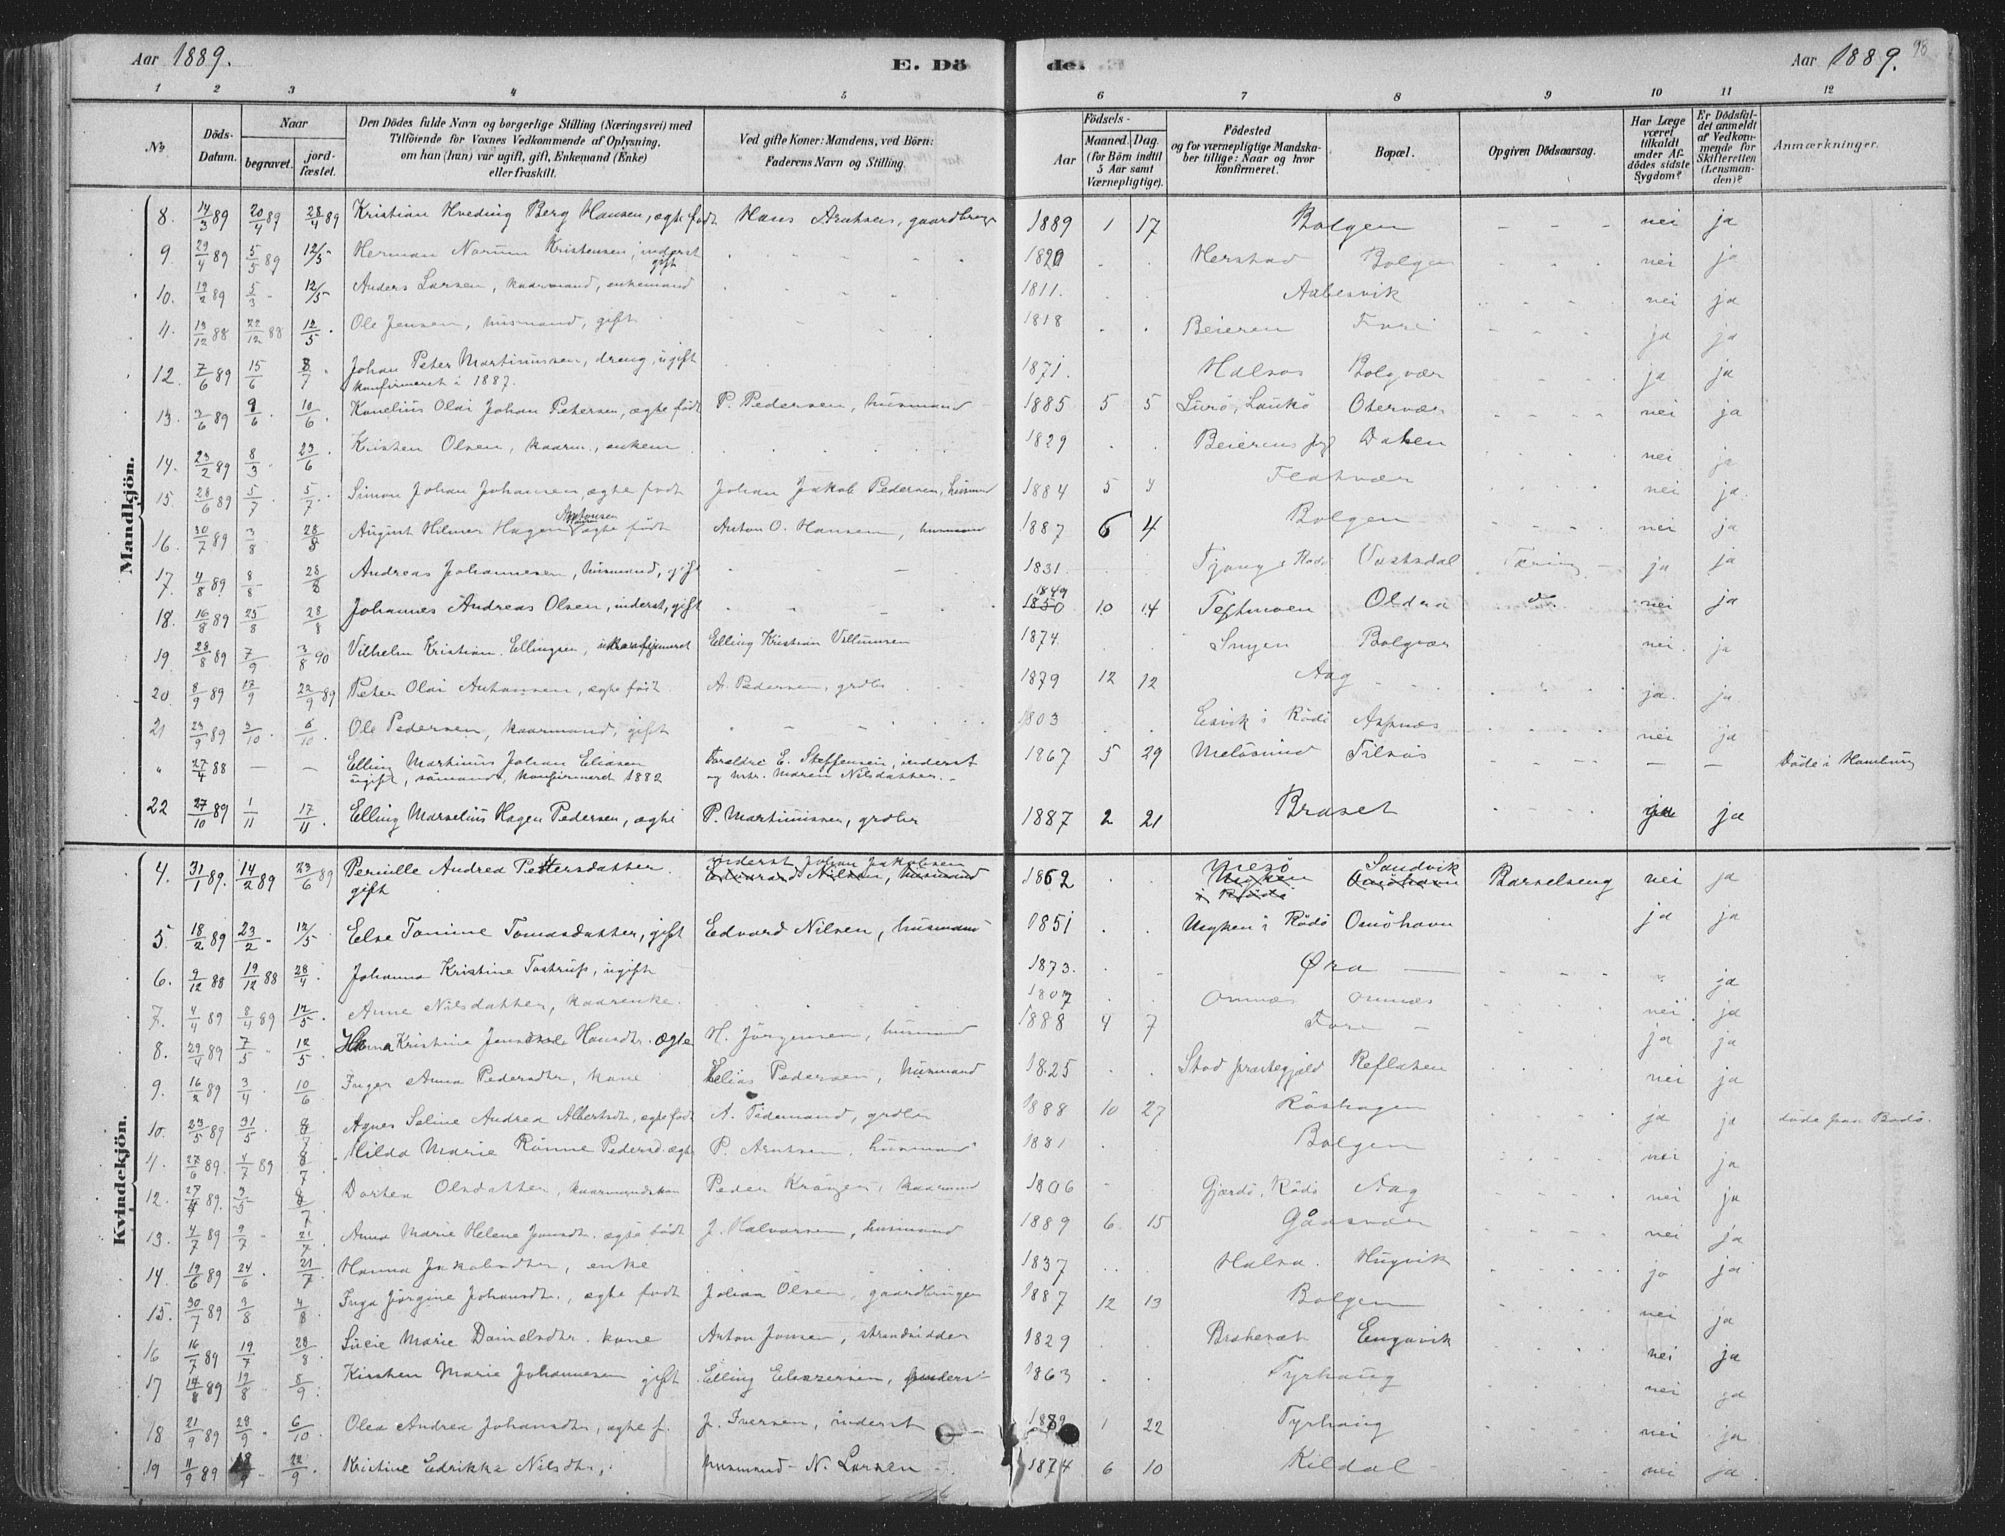 Aar 1889. E. Dö de. Aar 1889. 98
1 2 3 4 5 6 7 8 9 10 11 12
No Döds-Datum. Naar begravet. jord-fæstet. Den Dödes fulde Navn og borgerlige Stilling (Næringsvei) med Tilföiende for Voxnes Vedkommende af Oplysning, om han (hun) var ugift, gift, Enkemand (Enke) eller fraskilt. Ved gifte Koner: Mandens, ved Börn: Faderens Navn og Stilling. Födsels- Aar Maaned. Dag. (for Börn indtil 5 Aar samt Værnepligtige). Födested og for værnepligtige Mandskaber tillige: Naar og hvor konfirmeret. Bopæl. Opgiven Dödsaarsag. Har Læge været tilkaldt under Afdödes sidste Sygdom? Er Dödsfaldet anmeldt af Vedkommende for Skifteretten (Lensmanden)? Anmærkninger.
Mandkjön.
8. 14/3 89 20/4 89 28/4 89 Kristian Hveding Berg Hansen, ægte født Hans Arntsen, gaardbruger 1889 1 17 Bolgen nei ja
9. 29/4 89 5/5 89 12/5 Herman Norum Kristensen, inderst gift 1820 Herstad Bolgen nei ja
10. 19/2 89 5/3 12/5 Anders Larsen, kaarmand, enkemand 1811. Aabesvik nei ja
11. 19/12 88 22/12 88 12/5 Ole Jensen, husmand, gift 1818 Beieren Fore ja ja
12. 7/6 89 15/6 8/7 Johan Peter Martinussen, dreng, ugift konfirmeret i 1887. 1871. Halsos Bolgvær ja ja
13. 3/6 89 9/6 10/6 Kornelius Olai Johan Petersen, ægte født P. Pedersen, husmand 1885 5 5 Lurø, Laukø Otervær nei ja
14. 23/2 89 8/3 23/6 Kristen Olsen, kaarm., enkem. 1829 Beierens pgl Dalen nei ja
15. 28/6 89 5/7 5/7 Simon Johan Johansen, ægte født Johan Jakob Pedersen, husmand 1884 5 Flatvær nei ja.
16. 30/7 89 3/8 28/8 August Hilmer Hagen Antonsen ægte født Anton O. Hansen, husmand 1887 6 4 Bolgen nei ja
17. 4/8 89. 8/8 28/8 Andreas Johannesen, husmand, gift 1831. Tjong, Rødø Vastsdal Tæring ja ja
18. 16/8 89 25/8 28/8 Johannes Andreas Olsen, inderst, gift 1849 1850 10 14 Teftmoen Oldra d. nei ja
19. 28/8 89 7/9 3/8 90 Vilhelm Kristian Ellingsen, ukonfirmeret Elling Kristian Villumsen 1874. Bolgvær nei. ja
20. 8/9 89 17/9 22/9 89 Peter Olai Antonsen, ægte født. A. Pedersen, grdbr. 1879 12 12 Aag ja. ja
21 23/9 89 3/10 6/10 Ole Pedersen, kaarmand, gift 1803 Esvik i Rødø Aspnæs nei ja
" 27/4 88 — — Elling Martinus Johan Eliasen ugift, sömand, konfirmeret 1882 Forældre E. Steffensen, inderst og hstr. Maren Nilsdatter. 1867 5 29 Melösund Tilsos — — Döde i Hamburg
22 27/10 89 1/11 17/11. Elling Marselius Hagen Pedersen, ægte P. Martinussen, grdbr 1887 2 21 Braset ja ja
Kvindekjön.
4. 31/1 89. 14/2 89 23/6 89 Pernille Andrea Pettersdatter gift inderst Johan Jakobsen Edvard Nilsen, husmand 1862 Mesö Sandvik Barselseng nei ja
5. 18/2 89 23/2 12/5 Else Tomine Tomasdatter, gift Edvard Nilsen, husmand 1851 Myken i Rödö Osmöhavn ja ja
6. 9/12 88 19/12 88 28/4. Johanna Kristine Tostrup, ugift 1873. Øra ja
7. 4/4 89 8/4 89 12/5. Anne Nilsdatter, kaarenke. 1807 Omnæs Omnæs nei ja
8. 29/4 89 7/5 12/5 Hanna Kristine Hansdtr. ægte H. Jörgensen, husmand 1888 4 7 Fore ja ja
9. 16/2 89 3/4 10/6 Inger Anna Pedersdtr, kone Elias Pedersen, husmand 1825 Stod præstegjæld Reflaten nei ja
10. 23/5 89 31/5. 8/7 Agnes Seline Andrea Albertsdtr, ægte født A. Tidemand, grdbr 1888 10 27 Röshagen ja ja döde paa Bodø.
11. 27/6 89. 4/7 89 8/7 Hilda Marie Rönne Pedersd. ægte P. Arntsen, husmand 1881 Bolgen nei ja
12. 27/4 89. 3/5 8/7 Dortea Olsdatter, kaarmandskone Peder Kröger, kaarmand 1806 Gjærdö, Rödö Aag nei ja
13. 4/7 89 9/7 21/7 Anna Marie Helene Jensdtr. ægte født J. Halvorsen, husmand 1889 6. 15 Gåasvær nei ja
14. 19/6 89 24/6 21/7. Hanna Jakobsdtr, enke 1837 Halsa. Hugvik ja ja
15. 30/7 89 3/8 4/8. Inga Jörgine Johansdtr., ægte født Johan Olsen, gaardbruger 1887 12 13 Bolgen nei ja
16 16/7 89 19/7 28/8. Sueie Marie Danielsdtr. kone Anton Jensen, strandsidder 1829 Braheset Engavik nei ja
17 14/8 89 19/8 8/9. Kirsten Marie Johannesen gift Elling Eliezersen, inderst 1863 Tyrhaug nei ja
18 21/9 89 28/9 6/10 Olea Andrea Johansdtr, ægte f. J. Iversen, inderst 1889 1 22 Tyrhaug nei ja
19 11/9 89 18/9 22/9. Kristine Edrikke Nilsdtr, husmand N. Larsen 1874 6 10 Kildal nei ja.